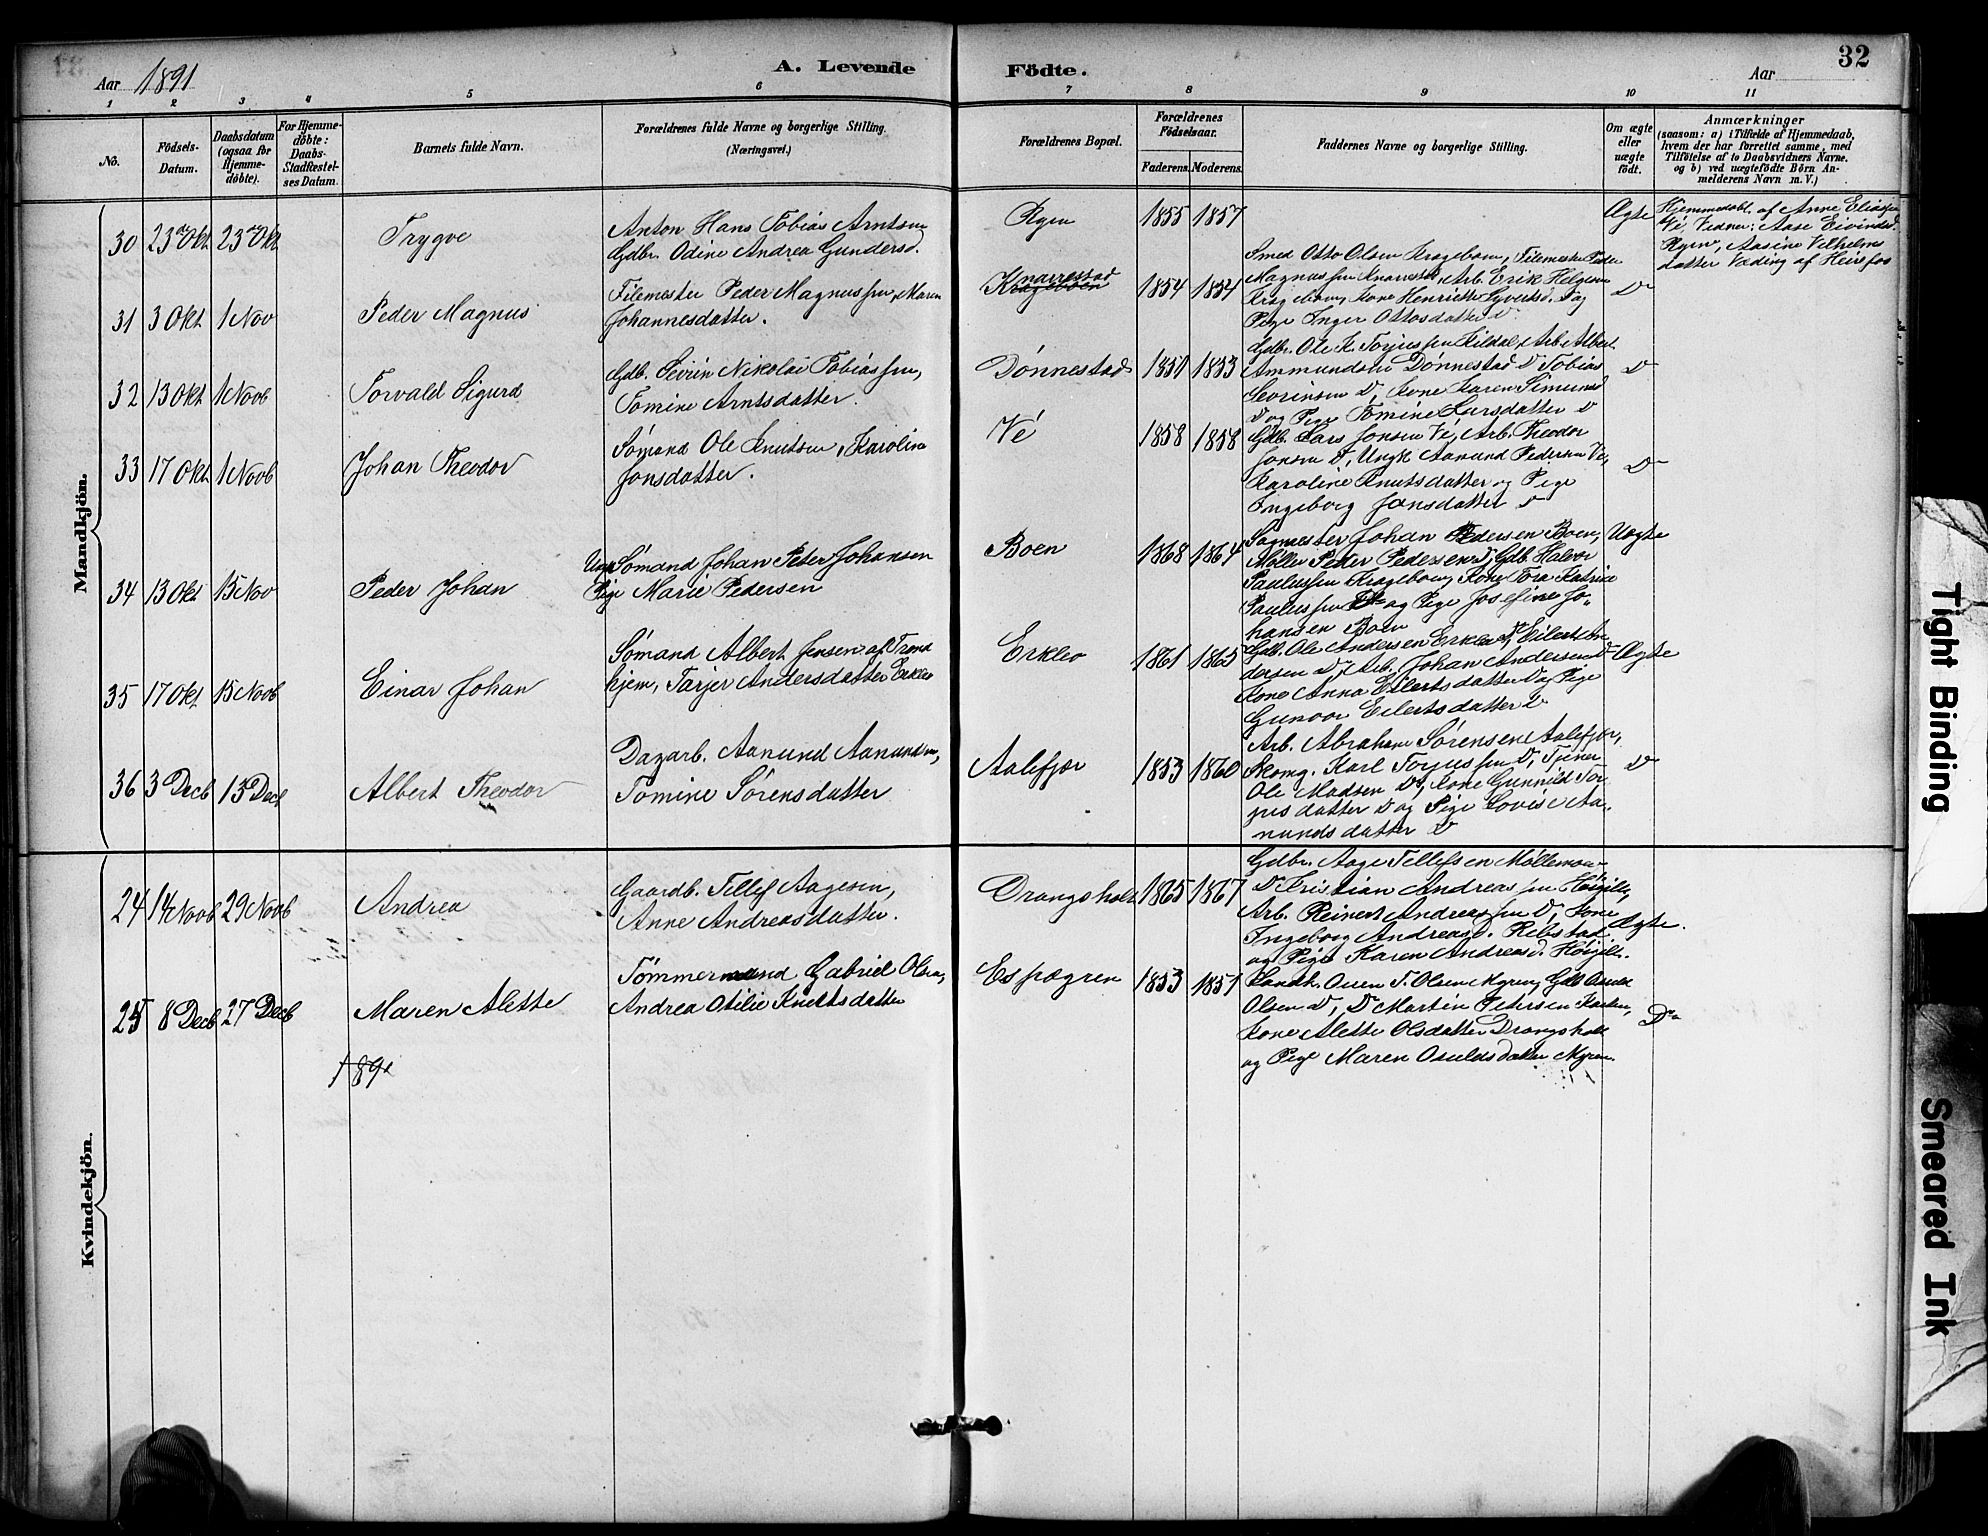 32
Aar 1891
A. Levende
Födte.
Aar
1 2 3 4 5 6 7 8 9 10 11
No.
Födsels-
Datum.
Daabsdatum
(ogsaa för
Hjemme-
döbte).
For Hjemme-
döbte:
Daabs-
Stadfæstel-
ses Datum.
Barnets fulde Navn.
Forældrenes fulde Navne og borgerlige Stilling.
(Næringsvei.)
Forældrenes Bopæl.
Forældrenes
Födselsaar.
Faderens. Moderens.
Faddernes Navne og borgerlige Stilling.
Om ægte
eller
uægte
födt.
Anmærkninger
(saasom: a) i Tilfælde af Hjemmedaab,
hvem der har forrettet samme, med
Tilföielse af to Daabsvidners Navne.
og b) ved uægtefödte Börn An-
melderens Navn m. V.)
Mandkjön.
30 23 Okt 23 Okt
Trygve
Anton Hans Tobias Arntsen
Gdbr. Odine Andrea Gundersd.
Ryen
1855 1857
Ægte
Hjemmedøbt af Anne Eliasen
Vé, Vidner: Aase Eivindsd.
Ryen, Aasine Vilhelms
datter Væding af Heisfos
31 3 Okt 1 Nov
Peder Magnus
Filemester Peder Magnussen, Maren
Johannesdatter.
Knarrestad
Krageboen
1854 1854
Smed Otto Olsen Krageboen, Filemester Peder
Magnussen Knarrestd, Arb. Erik Helgesen
Krageboen, Kone Henriette Syvertsd. D og
Pige Inger Ottosdatter D
Do
32 13 Okt 1 Novb
Torvald Sigurd
Gdb. Sevrin Nikolai Tobiassen,
Tomine Arntsdatter.
Dönnestad
1851 1853
Gdbr. Ole K. Torjussen Lildal, Arb. Albert
Ammundsen Dönnestad D Tobias
Sevrinsen D, Kone Karen Simonsd
D og Pige Tomine Larsdatter D
Do
33 17 Okt 1 Novb
Johan Theodor
Sömand Ole Knutsen, Karoline
Jonsdatter.
Vé
1858 1858
Gdb. Lars Jonsen Vé, Arb. Theodor
Jonsen D, Ungk Aanund Pedersen Ve,
Karoline Knutsdatter og Pige
Ingeborg Jonsdatter D
Do
34 13 Okt 15 Nov
Peder Johan
Ungk Sömand Johan Peter Johansen
Pige Marie Pedersen
Boen
1868 1864
Sagmester Johan Pedersen Boen,
Möller Peder Pedersen D, Gdb. Halvor
Paulussen Krageboen, Kone Tora Katrine
Paulussen D og Pige Josefine Jo-
hansen Boen
Uægte
35 17 Okt 15 Novb
Einar Johan
Sömand Albert Jensen af Trond
hjem, Tarjer Andersdatter Erklev
Erklev
1861 1865
Gdb. Ole Andersen Erklev, D Eilert An
dersen D, Arb. Johan Andersen D
Kone Anna Eilertsdatter D og Pige
Gunvor Eilertsdatter D
Ægte
36 3 Decb 13 Decb
Albert Theodor
Dagarb. Aanund Aanundsen,
Tomine Sörensdatter
Aalefjær
1853 1860
Arb. Abraham Sörensen Aalefjær,
Skomg. Karl Torjussen D, Tjener
Ole Madsen D, Kone Gunnild Tor
jusdatter D og Pige Lovise Aa-
nundsdatter D
Do
Kvindekjön.
24 14 Novb 29 Novb
Andrea
Gaardb. Tellef Aagesen,
Anne Andreasdatter.
Drangsholt
1865 1867
Gdbr. Aage Tellefsen Möllemoen
D Kristian Andreassen Höigilt,
Arb. Reinert Andreassen D, Kone
Ingeborg Andreasd. Ribstad
og Pige Karen Andreasd. Höigilt.
Ægte.
25 8 Decb 27 Decb
Maren Alette
Tömmermand Gabriel Olsen,
Andrea Otilie Knutsdatter
Espegren
1853 1851
Landh. Ouen T. Olsen Myren, Gdb Osuld
Olsen D, D Martin Petersen Karlsen,
Kone Alette Olsdatter Drangsholt
og Pige Maren Osuldsdatter Myren.
Do
1891
Tight Binding
Smeared Ink